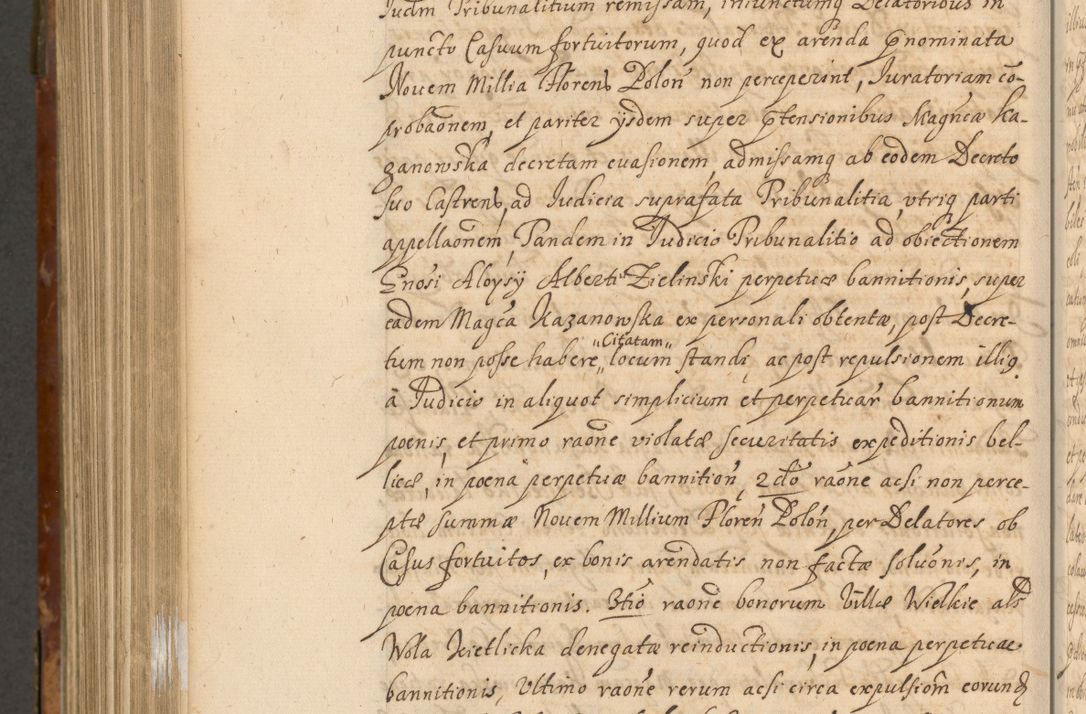 Judm Tribunalitium remissam, iniunctumq Delatoribus in
puncto Casuum fortuitorum, quod ex arenda pnominata
Novem Millia Florens Polon non perceperint, Iuratoriam co-
probaonem, et pariter ysdem super ptensionibus Magncæ Ka-
zanowska decretam evasionem, admissamq ab eodem Decreto
suo Castrens, ad Iudicia suprafata Tribunalitia, utriq parti
appellaonem, Tandem in Iudicio Tribunalitio ad obiectionem
Gnosi Aloysy Alberti Zielinski perpetuæ bannitionis, super
eadem Magca Kazanowska ex personali obtentæ, post Decre-
tum non posse habere „Citatam„ locum standi, ac post repulsionem illiq
à Iudicio in aliquot simplicium et perpetuar bannitionum
poenis, et primo raone violatæ securitatis expeditionis bel-
licæ, in poena perpetuæ bannition, 2do raone acsi non perce-
ptæ summæ Novem Millium Floren Polon, per Delatores ob
Casus fortuitos, ex bonis arendatis non factæ soluonis, in
poena bannitionis. 3tio raone bonorum Villæ Wielkie als
Wola Kietlicka denegatæ reinductionis, in poena perpetuae
bannitionis, Ultimo raone rerum acsi circa expulsiom eorund